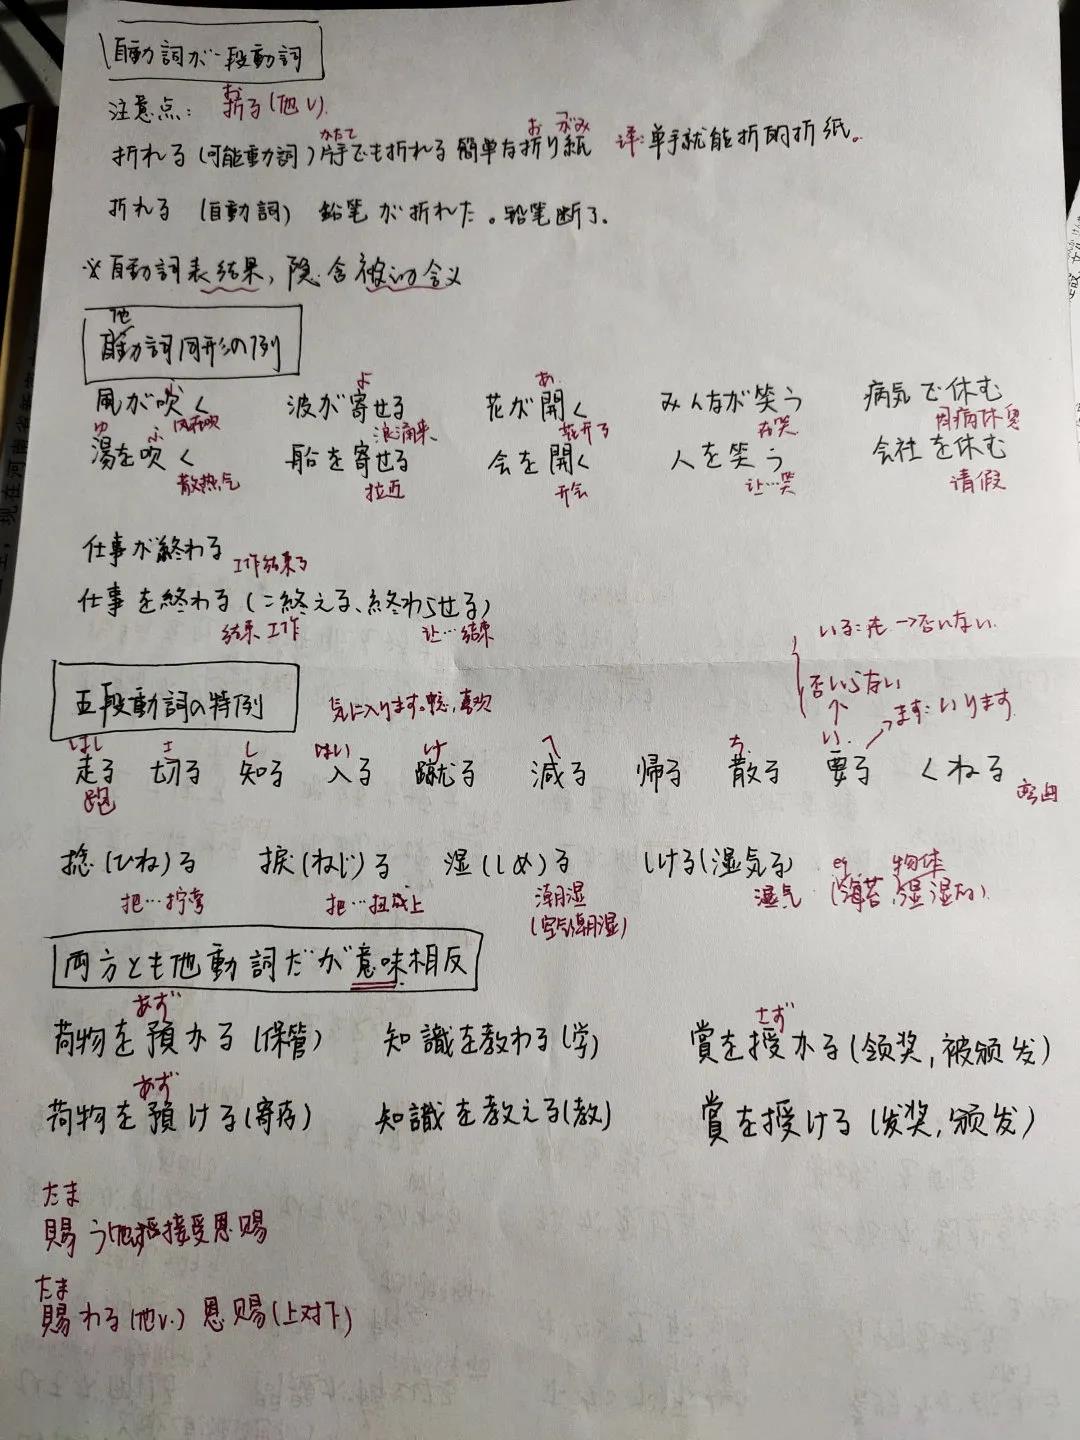 自動詞が一段動詞
お
注意点: 折る(他v).
かたて お がみ
折れる(可能動詞)片手でも折れる簡単な折り紙 译:单手就能折的折纸。
折れる (自動詞) 鉛笔が折れた。铅笔断了.
※自動詞表结果, 隐含被的含义
他
自動詞同形の例
ふ よ あ
風が吹く 波が寄せる 花が開く みんなが笑う 病気で休む
风在吹 浪涌来 花开了 在笑 因病休息
ゆ ふ
湯を吹く 船を寄せる 会を開く 人を笑う 会社を休む
散热气 拉近 开会 让…笑 请假
仕事が終わる 工作结束了
仕事を終わる(=終える、終わらせる)
结束工作 让…结束
いる: →否いない.
否いらない
五段動詞の特例 気に入ります. 喜欢 ↑ ます: いります
はし き し はい け へ ち い
走る 切る 知る 入る 蹴る 減る 帰る 散る 要る くねる
跑 弯曲
捻(ひね)る 捩(ねじ)る 湿(しめ)る しける(湿気る) eg 物体
把…拧弯 把…扭或上 潮湿 湿气 (海苔, 湿湿的).
(空气潮湿)
両方とも他動詞だが意味相反
あず さず
荷物を預かる(保管) 知識を教わる(学) 賞を授かる(领奖,被颁发)
あず
荷物を預ける(寄存) 知識を教える(教) 賞を授ける(发奖,颁发)
たま
賜う 接受恩赐
たま
賜わる(他v.) 恩赐(上对下)